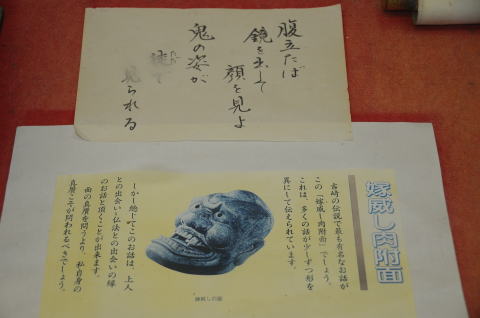 腹立たば
鏡を出して
顔を見よ
鬼の姿が
見られる
嫁威し肉附面
吉崎の伝説で最も有名なお話が
この「嫁威し肉附面」でしょう。
これは、多くの話が少しずつ形を
異にして伝えられています。
しかし総じてこのお話は、上人
との出会い・仏法との出会いの縁
のお話と頂くことが出来ます。
面の真贋を問うより、私自身の
真贋こそが問われるべきでしょう。
嫁威しの面